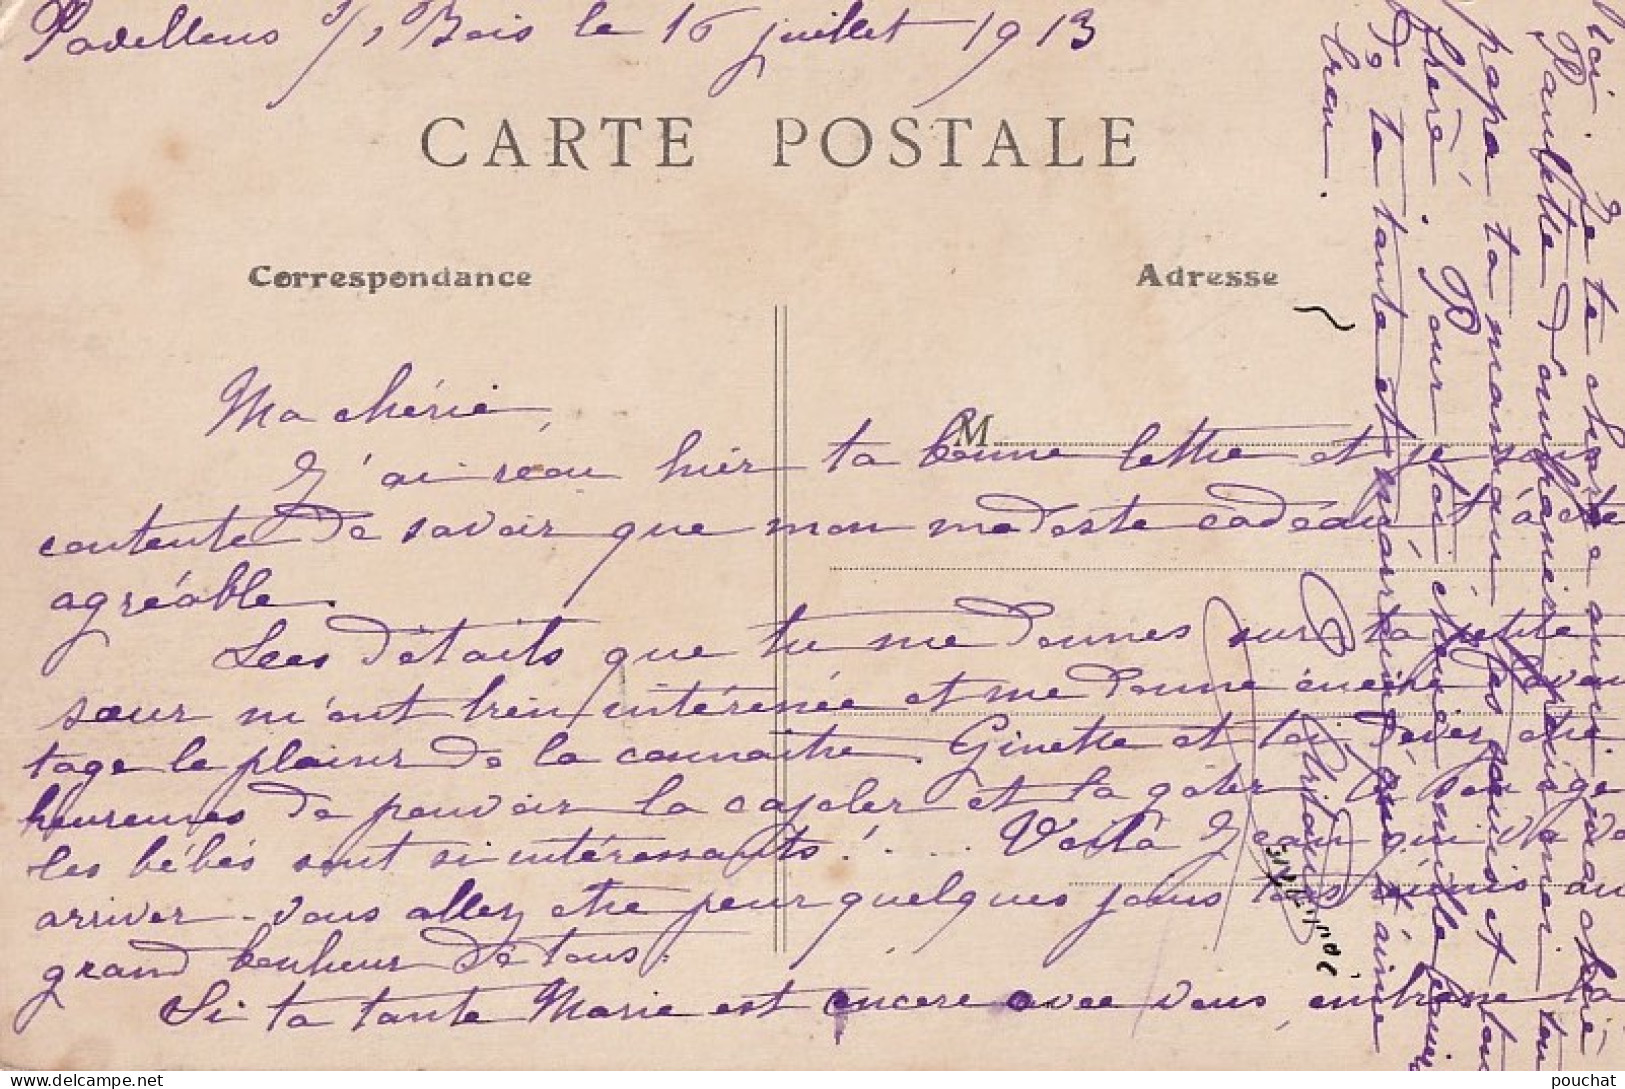 Pavillons s/s Bois le 16 juillet 1913
CARTE POSTALE
Correspondance
Adresse
M
Ma chérie,
J'ai reçu hier ta bonne lettre et je suis
contente de savoir que mon modeste cadeau t'a été
agréable.
Les détails que tu me donnes sur ta petite
sœur m'ont bien intéressée et me donne encore davan
tage le plaisir de la connaître. Ginette et toi devez être
heureuses de pouvoir la cajoler et la gâter. A son âge
les bébés sont si intéressants! .... Voilà Jean qui va
arriver - vous allez être pour quelques jours tous réunis au
grand bonheur de tous.
Si ta tante Marie est encore avec vous, embrasse la
toi. Je te charge aussi ma chérie
Paulette d'embrasser ton
papa ta maman tes sœurs et ton
frère. Pour toi chérie mille baisers
De ta tante et marraine qui t'aime
bien.
pouchat